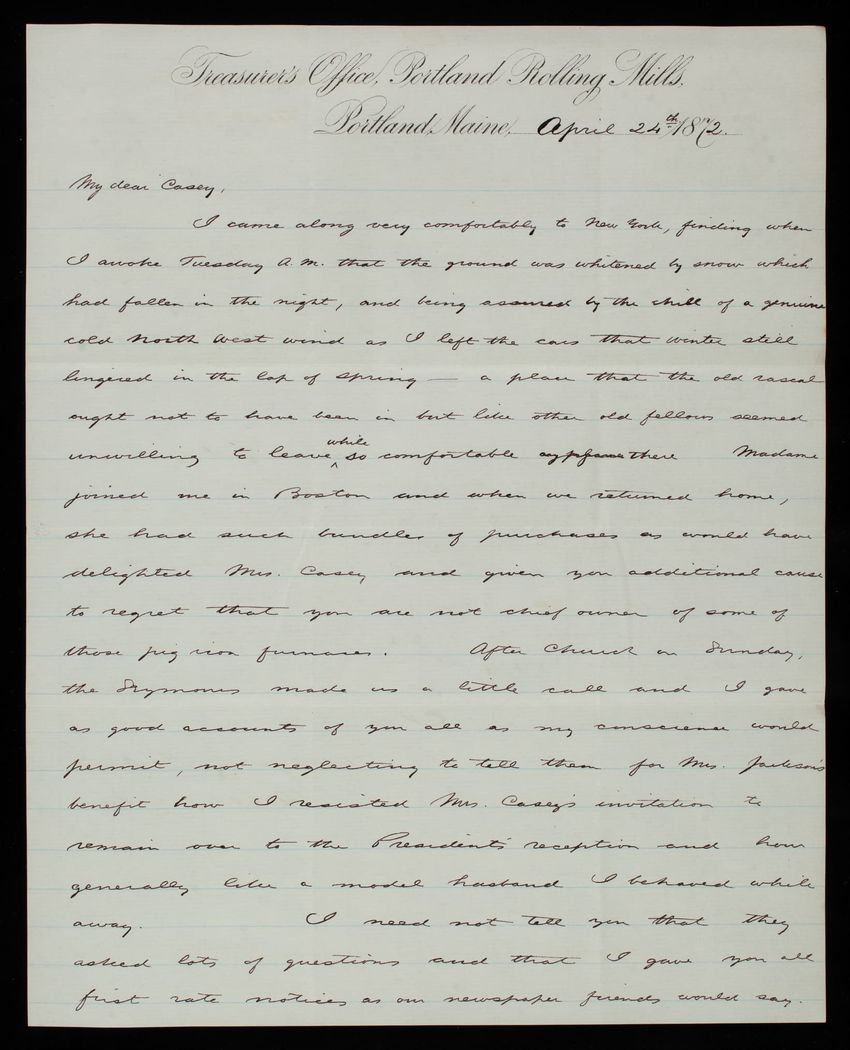 Treasurer's Office, Portland Rolling Mills,
Portland, Maine, April 24th 1872.
My dear Casey,
I came along very comfortably to New York, finding when
I awoke Tuesday A.M. that the ground was whitened by snow which
had fallen in the night, and being assured by the chill of a genuine
cold North West wind as I left the cars that winter still
lingered in the lap of Spring — a place that the old rascal
ought not to have been in but like other old fellows seemed
unwilling to leave while so comfortable there Madame
joined me in Boston and when we returned home,
she had such bundles of purchases as would have
delighted Mrs. Casey and given you additional cause
to regret that you are not chief owner of some of
those pig iron furnaces. After Church on Sunday,
the Seymours made us a little call and I gave
as good accounts of you all as my conscience would
permit, not neglecting to tell them for Mrs. Jackson's
benefit how I resisted Mrs. Casey's invitation to
remain over to the President's reception and how
generally like a model husband I behaved while
away. I need not tell you that they
asked lots of questions and that I gave you all
first rate notices as our newspaper friends would say.